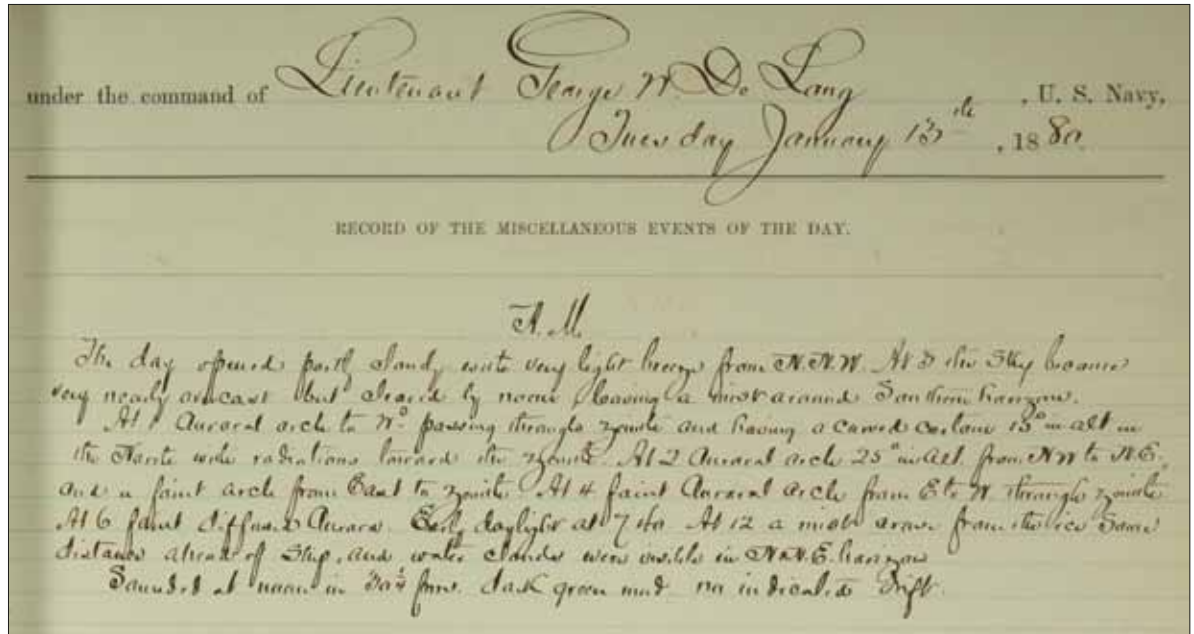 under the command of Lieutenant George W. De Long , U. S. Navy,
Tuesday January 13th , 1880.
RECORD OF THE MISCELLANEOUS EVENTS OF THE DAY.
A. M.
The day opened partly cloudy with very light breeze from N.N.W. At 3 the sky became
very nearly overcast but cleared by noon leaving a mist around Southern horizon.
At 1 Auroral arch to passing through zenith and having a curved curtain 15° in alt in
the North with radiations toward the zenith. At 2 Auroral arch 25° in alt. from NW to N.E.
and a faint arch from East to zenith. At 4 faint Auroral arch from E to W through zenith
At 6 faint diffused Aurora. Early daylight at 7 At 12 a mist arose from the ice some
distance ahead of ship, and water clouds were visible in N.N.E. horizon
Sounded at noon in fms. dark green mud no indicated drift.